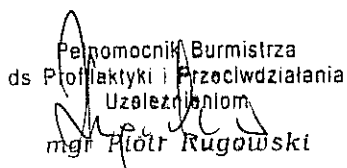 Pełnomocnik Burmistrza
ds Profilaktyki i Przeciwdziałania
Uzależnieniom
mgr Piotr Rugowski